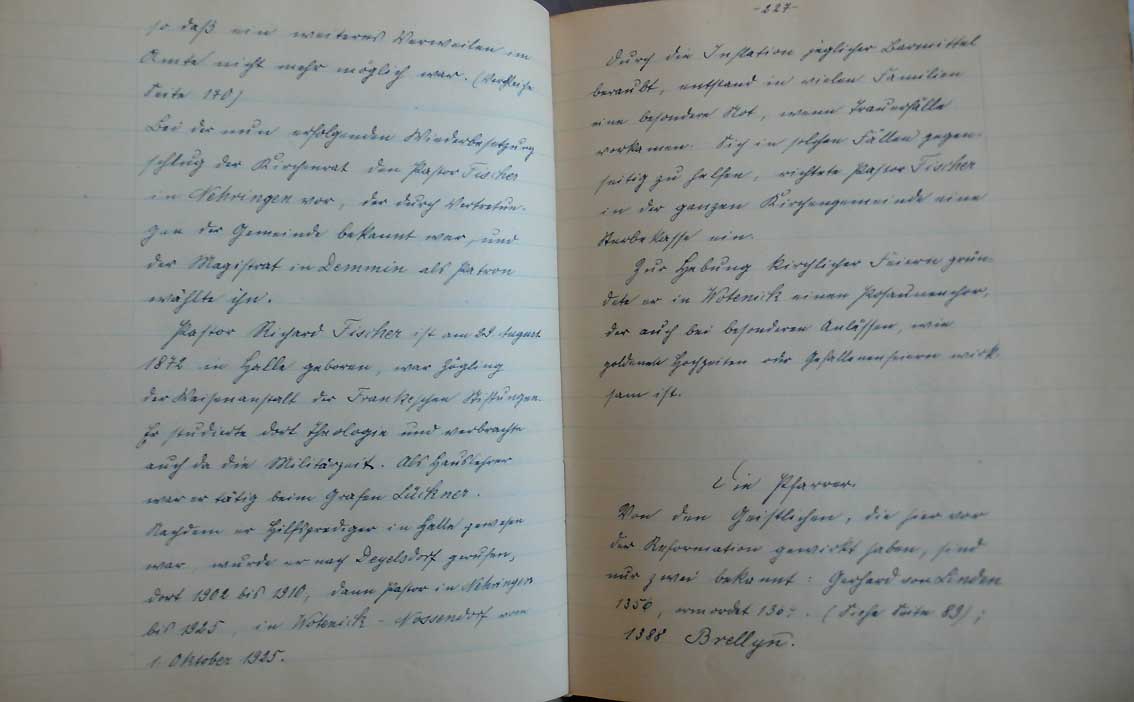 so daß ein weiteres Verweilen im
Amte nicht mehr möglich war. (Vergleiche
Seite 170)
Bei der nun erfolgenden Wiederbesetzung
schlug der Kirchenrat den Pastor Fischer
in Nehringen vor, der durch Vertretun-
gen der Gemeinde bekannt war, und
der Magistrat in Demmin als Patron
wählte ihn.
Pastor Richard Fischer ist am 29. August
1872 in Halle geboren, war Zögling
der Waisenanstalt der Frankeschen Stiftungen.
Er studierte dort Theologie und verbrachte
auch da die Militärzeit. Als Hauslehrer
war er tätig beim Grafen Lückner.
Nachdem er Hilfsprediger in Halle gewesen
war, wurde er nach Deyelsdorf gerufen,
dort 1902 bis 1910, dann Pastor in Nehringen
bis 1925, in Wotenick-Nossendorf vom
1. Oktober 1925.
-227-
Durch die Inflation jeglicher Barmittel
beraubt, entstand in vielen Familien
eine besondere Not, wenn Trauerfälle
vorkamen. Sich in solchen Fällen gegen-
seitig zu helfen, richtete Pastor Fischer
in der ganzen Kirchengemeinde eine
Sterbekasse ein.
Zur Hebung kirchlicher Feiern grün-
dete er in Wotenick einen Posaunenchor,
der auch bei besonderen Anlässen, wie
goldenen Hochzeiten oder Gefallenenfeiern wirk-
sam ist.
Die Pfarrer.
Von den Geistlichen, die hier vor
der Reformation gewirkt haben, sind
nur zwei bekannt: Gerhard von Linden
1356, ermordet (Siehe Seite 89);
1388 Brellyn̄.